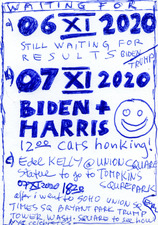 WAITING FOR
06 XI 2020
STILL WAITING FOR
RESULTS BIDEN
TRUMP
07 XI 2020
BIDEN +
HARRIS
1200 cats honking!
EDEL KELLY @ UNION SQUARE
statue to go to TOMPKINS
SQUARE PARK
07 XI 2020 1820
after i went to SOHO UNION SQ
TIMES SQ BRYANT PARK TRUMP
TOWER WASH. SQUARE to see how